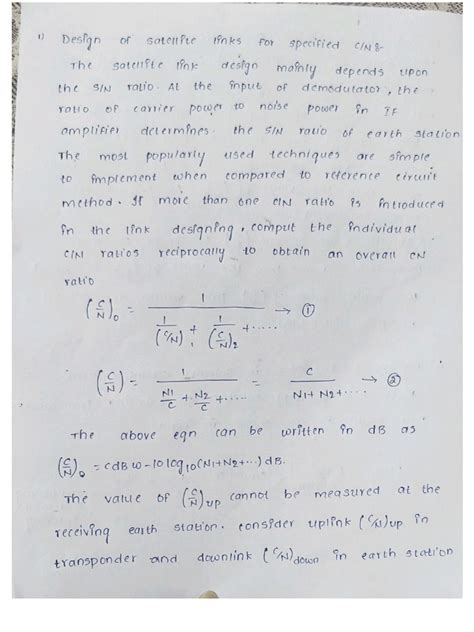 1) Design of satellite links for specified C/N :-
The satellite link design mainly depends upon
the S/N ratio. At the input of demodulator, the
ratio of carrier power to noise power in IF
amplifier determines the S/N ratio of earth station
The most popularly used techniques are simple
to implement when compared to reference circuit
method. If more than one C/N ratio is introduced
in the link designing, comput the individual
C/N ratios reciprocally to obtain an overall CN
ratio
(C/N)₀ = 1 / (1/(C/N)₁ + 1/(C/N)₂ + .....) → ①
(C/N) = 1 / (N1/C + N2/C + .....) = C / (N1+N2+....) → ②
The above eqn can be written in dB as
(C/N)₀ = CdBW-10log₁₀(N1+N2+...) dB.
The value of (C/N)up cannot be measured at the
receiving earth station. consider uplink (C/N)up in
transponder and downlink (C/N)down in earth station